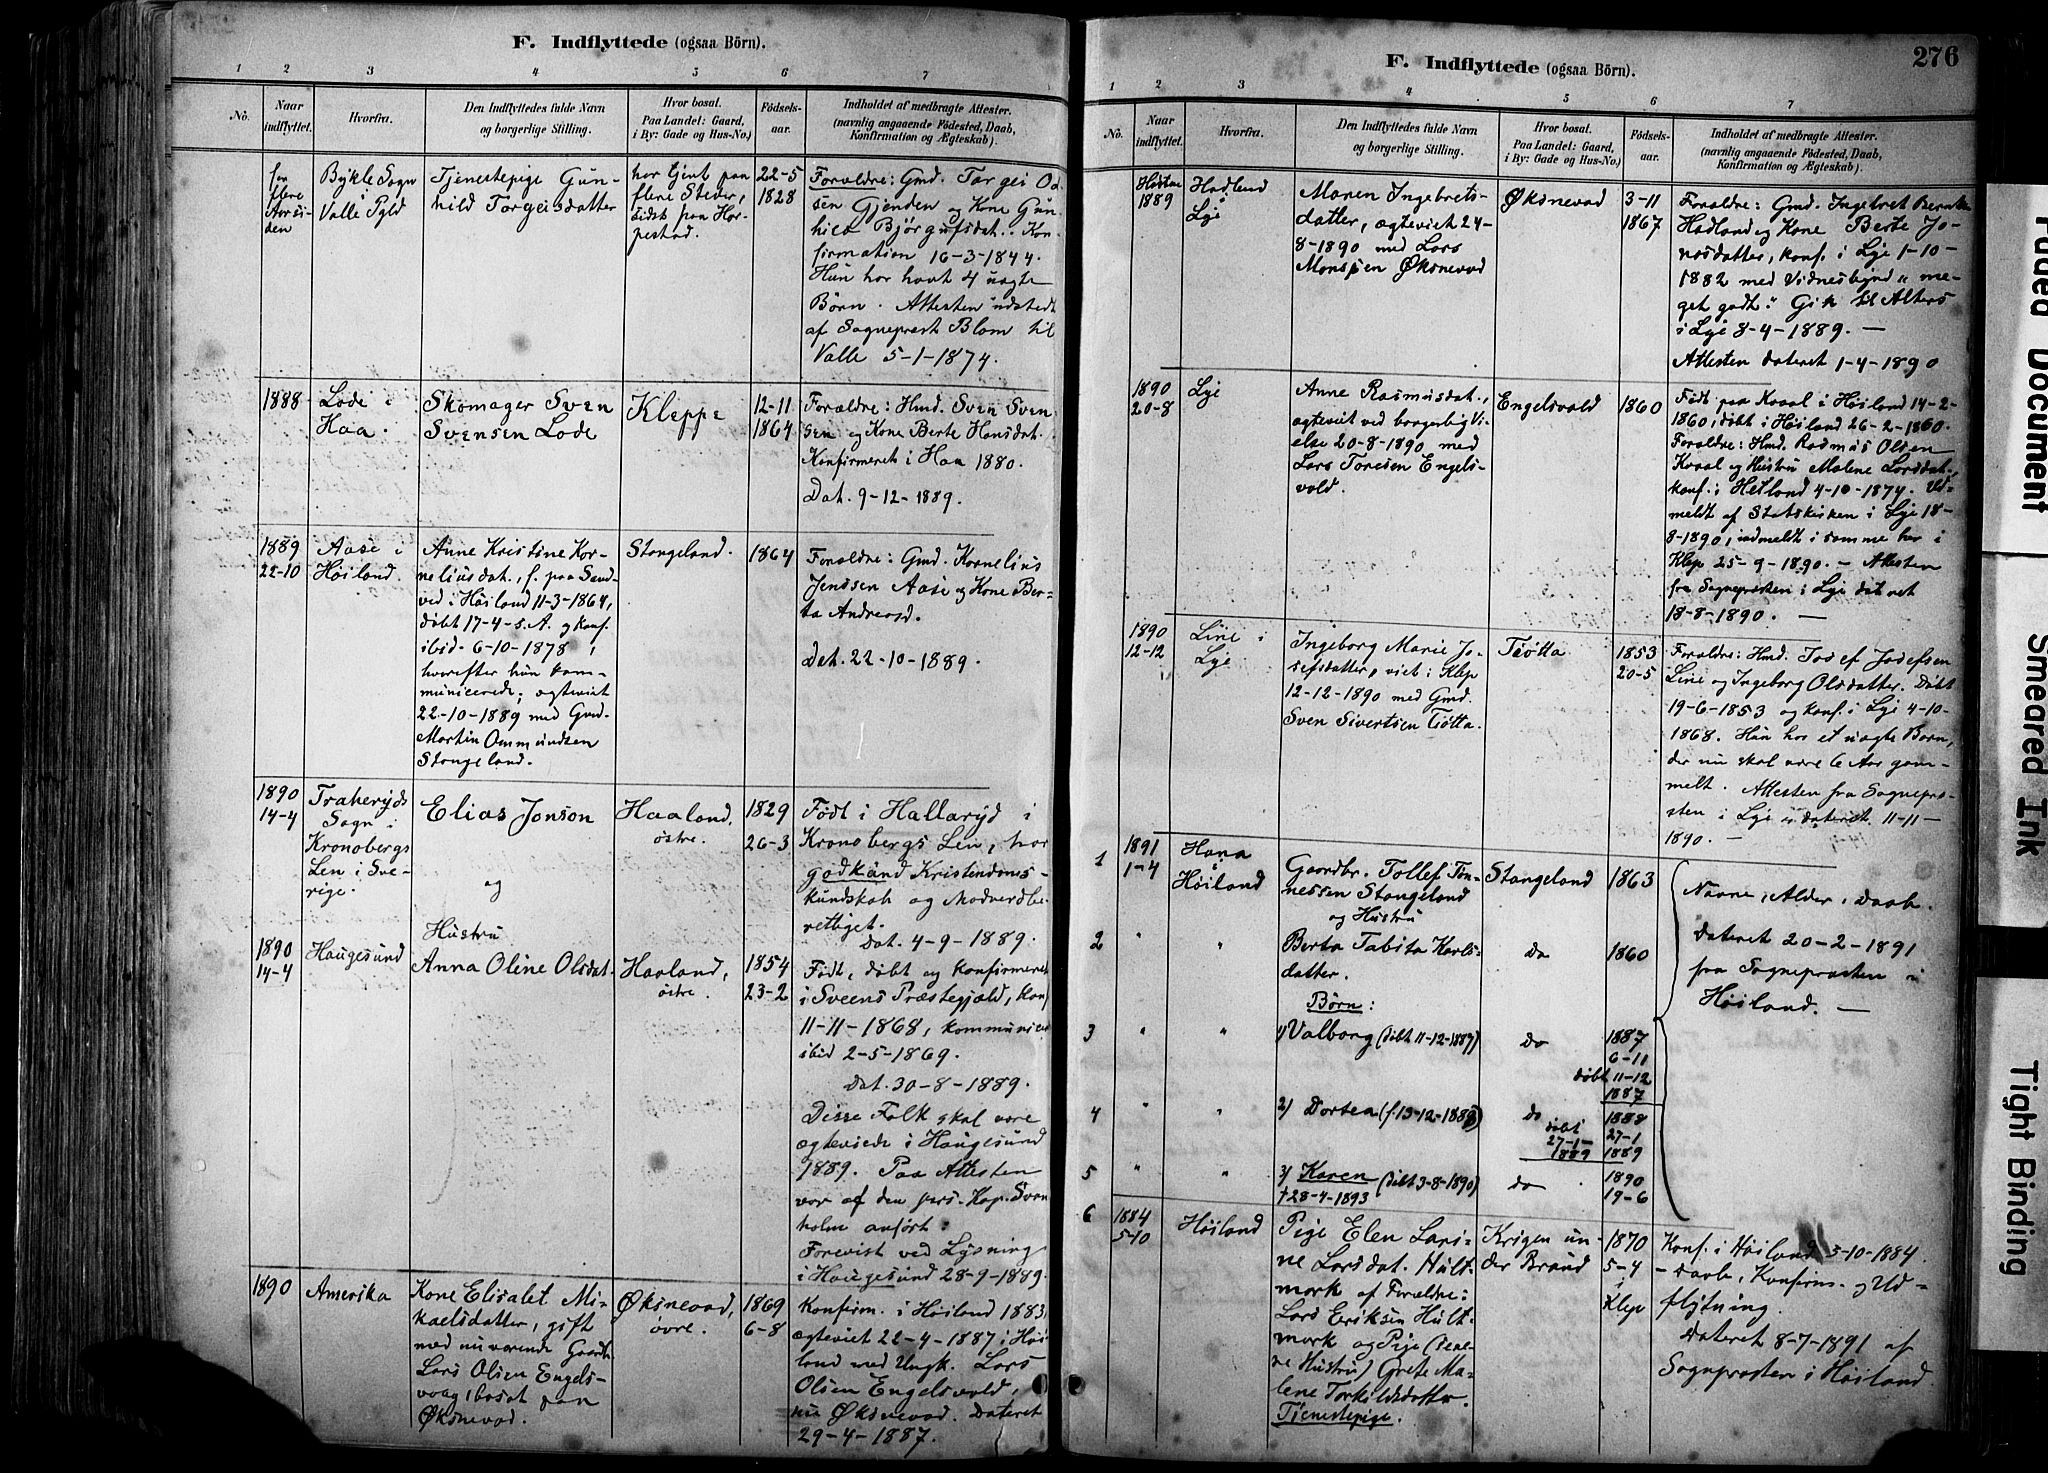 F. Indflyttede (ogsaa Börn).
1 2 3 4 5 6 7
No.
Naar indflyttet.
Hvorfra.
Den Indflyttedes fulde Navn
og borgerlige Stilling.
Hvor bosat.
Paa Landet: Gaard,
i By: Gade og Hus-No.)
Födsels-
aar.
Indholdet af medbragte Attester.
(navnlig angaaende Födested, Daab,
Konfirmation og Ægteskab).
for
flere
Aar si-
den
Bykle Sogn
Valle Pgld
Tjenestepige Gun-
hild Torgeisdatter
har tjent paa
flere Steder,
sidst paa Hor-
pestad.
22-5
1828
Forældre: Gmd. Targei Od
sen Gjenden og Kone Gun-
hild Bjørgufsdat.. Kon-
firmation 16-3-1844.
Hun har havt 4 uægte
Børn. Attesten udstedt
af Sogneprest Blom til
Valle 5-1-1874.
1888
Lode i
Haa.
Skomager Sven
Svensen Lode
Kleppe
12-11
1864
Forældre: Hmd. Sven Sven
sen og Kone Berte Hansdat.
Konfirmeret i Haa 1880.
Dat. 9-12-1889.
1889
22-10
Aase i
Høiland.
Anne Kristine Kor-
neliusdat., f. paa Sand-
ved i Høiland 11-3-1864,
døbt 17-4-s. A. og konf.
ibid. 6-10-1878,
hvorefter hun kom-
municerede; ægteviet
22-10-1889 med Gmd.
Martin Ommundsen
Stangeland.
Stangeland.
1864
Forældre: Gmd. Kornelius
Jenssen Aase og Kone Ber-
ta Andreasd.
Dat. 22-10-1889.
1890
14-4
Traheryds
Sogn i
Kronobergs
Len i Sve-
rige.
Elias Jonson
og
Haaland,
østre.
1829
26-3
Født i Hallaryd i
Kronobergs Len, har
godkänd Kristendoms-
kundskab og Nadverdbe-
rettiget.
Dat. 4-9-1889.
1890
14-4
Haugesund
Hustru
Anna Oline Olsdat.
Haaland,
østre.
1854
23-2
Født, døbt og konfirmeret
i Sveens Præstegjæld, konf
11-11-1868, kommunicer
ibid 2-5-1869.
Dat. 30-8-1889.
Disse Folk skal være
ægteviede i Haugesund
1889. Paa Attesten
var af den pers. Kap. Svan
holm anført:
Forevist ved Lysning
i Haugesund 28-9-1889.
1890
Amerika
Kone Elisabet Mi-
kaelsdatter, gift
med nuværende Gaardb.
Lars Olsen Engels-
voag, bosat paa
Øksnevad.
Øksnevad,
øvre.
1869
6-8
Konfirm. i Høiland 1883,
ægteviet 22-4-1887, i Høi
land med Ungk. Lars
Olsen Engelsvold,
nu Øksnevad. Dateret
29-4-1887.
F. Indflyttede (ogsaa Börn).
276
1 2 3 4 5 6 7
No.
Naar
indflyttet.
Hvorfra.
Den Indflyttedes fulde Navn
og borgerlige Stilling.
Hvor bosat.
Paa Landet: Gaard,
i By: Gade og Hus-No.)
Födsels-
aar.
Indholdet af medbragte Attester.
(navnlig angaaende Födested, Daab,
Konfirmation og Ægteskab).
Høsten
1889
Hadland
Lye
Maren Ingebrets-
datter, ægteviet 24-
8-1890 med Lars
Monssen Øksnevad
Øksnevad
3-11
1867
Forældre: Gmd. Ingebret Berntsen
Hadland og Kone Berte Jo-
nasdatter, konf. i Lye 1-10-
1882 med Vidnesbyrd „me-
get godt." Gik til Alters
i Lye 8-4-1889. —
Attesten dateret 1-4-1890
1890
20-8
Lye
Anne Rasmusdat.,
ægteviet ved borgerlig Vi-
else 20-8-1890 med
Lars Toresen Engels-
vold.
Engelsvold
1860
Født paa Kvaal i Høiland 14-2-
1860, døbt i Høiland 26-2-1860.
Forældre: Hmd. Rasmus Olsen
Kvaal og Hustru Malene Larsdat.,
konf. i Hetland 4-10-1874. Ud-
meldt af Statskirken i Lye 18-
8-1890, indmeldt i samme her i
Klep 25-9-1890. — Attesten
fra Sognepresten i Lye dateret
18-8-1890. —
1890
12-12
Line i
Lye
Ingeborg Marie Jo-
sefsdatter, viet i Klep
12-12-1890 med Gmd.
Sven Sivertsen Tjøtta.
Tjøtta
1853
20-5
Forældre: Hmd. Josef Josefsen
Line og Ingeborg Olsdatter. Døbt
19-6-1853 og konf. i Lye 4-10-
1868. Hun har et uægte Barn,
der nu skal være 6 Aar gam-
melt. Attesten fra Sognepre-
sten i Lye er dateret 11-11-
1890. —
1
1891
1-4
Hana
i
Høiland
Gaardbr. Tollef Tøn-
nessen Stangeland
og Hustru
Stangeland
1863
Navne, Alder, Daab.
Dateret 20-2-1891
fra Sognepræsten i
Høiland. —
2
"
"
Berta Tabita Karls-
datter.
do
1860
Børn:
3
"
"
1) Valborg (døbt 11-12-1887)
do
1887
6-11
døbt 11-12
1887
4
"
"
2) Dortea (f. 13-12-1888)
do
døbt
27-1-
1889
1888
27-1
1889
5
"
"
3) Karen (døbt 3-8-1890)
†28-4-1893
do
1890
19-6
6
1884
5-10
Høiland
Pige Elen Lari-
ne Larsdat. Hult-
mark af Forældre:
Lars Eriksen Hult-
mark og Pige (sene-
re Hustru) Grete Ma-
lene Torkeldsdatter.
Tjenestepige.
Krigen un-
der Braud
1870
5-4
i
Klep
Konf. i Høiland 5-10-1884.
- Daab, Konfirm. og Ud-
flytning.
Dateret 8-7-1891 af
Sognepræsten i Høiland.
Faded Document
Smeared Ink
Tight Binding